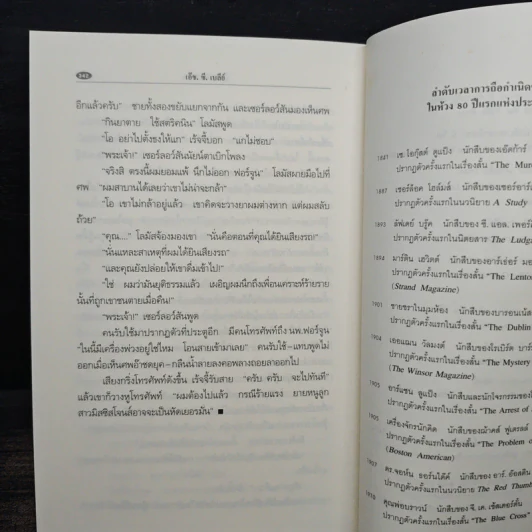 เอ็ช. ซี. เบลีย์
อีกแล้วครับ" ชายทั้งสองขยับแยกจากกัน และเซอร์ลอว์สันมองเห็นศพ
"กินยาตาย ใช้สตริคนิน" โลมัสพูด
"โอ อย่าไปตั้งธงให้แก" เร้จจี้บอก "แกไม่ชอบ"
"พระเจ้า!" เซอร์ลอว์สันนัยน์ตาเบิกโพลง
"จริงสิ ตรงนี้ผมยอมแพ้ นึกไม่ออก ฟอร์จูน" โลมัสผายมือไปที่
ศพ "ผมสาบานได้เลยว่าเขาไม่น่าจะกล้า"
"โอ เขาไม่กล้าอยู่แล้ว เขาคิดจะวางยาผมต่างหาก แต่ผมสลับ
ถ้วย"
"คุณ...." โลมัสจ้องมองเขา "นั่นคือตอนที่คุณได้ยินเสียงรถ!"
"นั่นแหละสาเหตุที่ผมได้ยินเสียงรถ"
"และคุณยังปล่อยให้เขาดื่มเข้าไป!"
"ใช่ ผมว่ามันยุติธรรมแล้ว เผอิญผมนึกถึงเพื่อนเคราะห์ร้ายราย
นั้นที่ถูกเขาชนตายเมื่อคืน!"
"พระเจ้า!" เซอร์ลอว์สันพูด
คนรับใช้มาปรากฏตัวที่ประตูอีก มีคนโทรศัพท์ถึง นพ.ฟอร์จูน
"ในนี้มีเครื่องพ่วงอยู่ใช่ไหม โอนสายเข้ามาเลย" คนรับใช้-แทบพูดไม่
ออกเมื่อเห็นศพอ้าซดยุค-กลืนน้ำลายลงคอพลางถอยลาออกไป
เสียงกริ่งโทรศัพท์ดังขึ้น เร้จจี้รับสาย "ครับ ครับ จะไปทันที"
แล้วเขาก็วางหูโทรศัพท์ "ผมต้องไปแล้ว กรณีร้ายแรง ยายหนูลูก
สาวมิสซิสโจนส์อาจจะเป็นหัดเยอรมัน" ■
ลำดับเวลาการถือกำเนิด
ในห้วง 80 ปีแรกแห่งประ
1841 เซ.โอกุ๊สต์ ดูแป็ง นักสืบของเอ็ดการ์
ปรากฏตัวครั้งแรกในเรื่องสั้น "The Mur
1887 เชอร์ล็อค โฮล์มส์ นักสืบของเซอร์อาร์
ปรากฏตัวครั้งแรกในนวนิยาย A Study
1893 ลัฟเดย์ บรู๊ค นักสืบของ ซี. แอล. เพอร์
ปรากฏตัวครั้งแรกในนิตยสาร The Ludg
1894 มาร์ติน เฮวิตต์ นักสืบของอาร์เธอร์ มอ
ปรากฏตัวครั้งแรกในเรื่องสั้น "The Lento
(Strand Magazine)
1901 ชายชราในมุมห้อง นักสืบของบารอนเน็ส
ปรากฏตัวครั้งแรกในเรื่องสั้น "The Dublin
1904 เออแมน วัลมงต์ นักสืบของโรเบิร์ต บาร์
ปรากฏตัวครั้งแรกในเรื่องสั้น "The Mystery
(The Winsor Magazine)
1905 อาร์แซน ลูแป็ง นักสืบและนักโจรกรรมของโ
ปรากฏตัวครั้งแรกในเรื่องสั้น "The Arrest of
1905 เครื่องจักรนักคิด นักสืบของแจ๊คส์ ฟูเทรลล์
ปรากฏตัวครั้งแรกในเรื่องสั้น "The Problem of
(Boston American)
1907 ดร.จอห์น ธอร์นไดค์ นักสืบของ อาร์. อัสติน
ปรากฏตัวครั้งแรกในนวนิยาย The Red Thumb
1910 คุณพ่อบราวน์ นักสืบของ จี. เค. เช็สเตอร์ตั้น
ปรากฏตัวครั้งแรกในเรื่องสั้น "The Blue Cross"